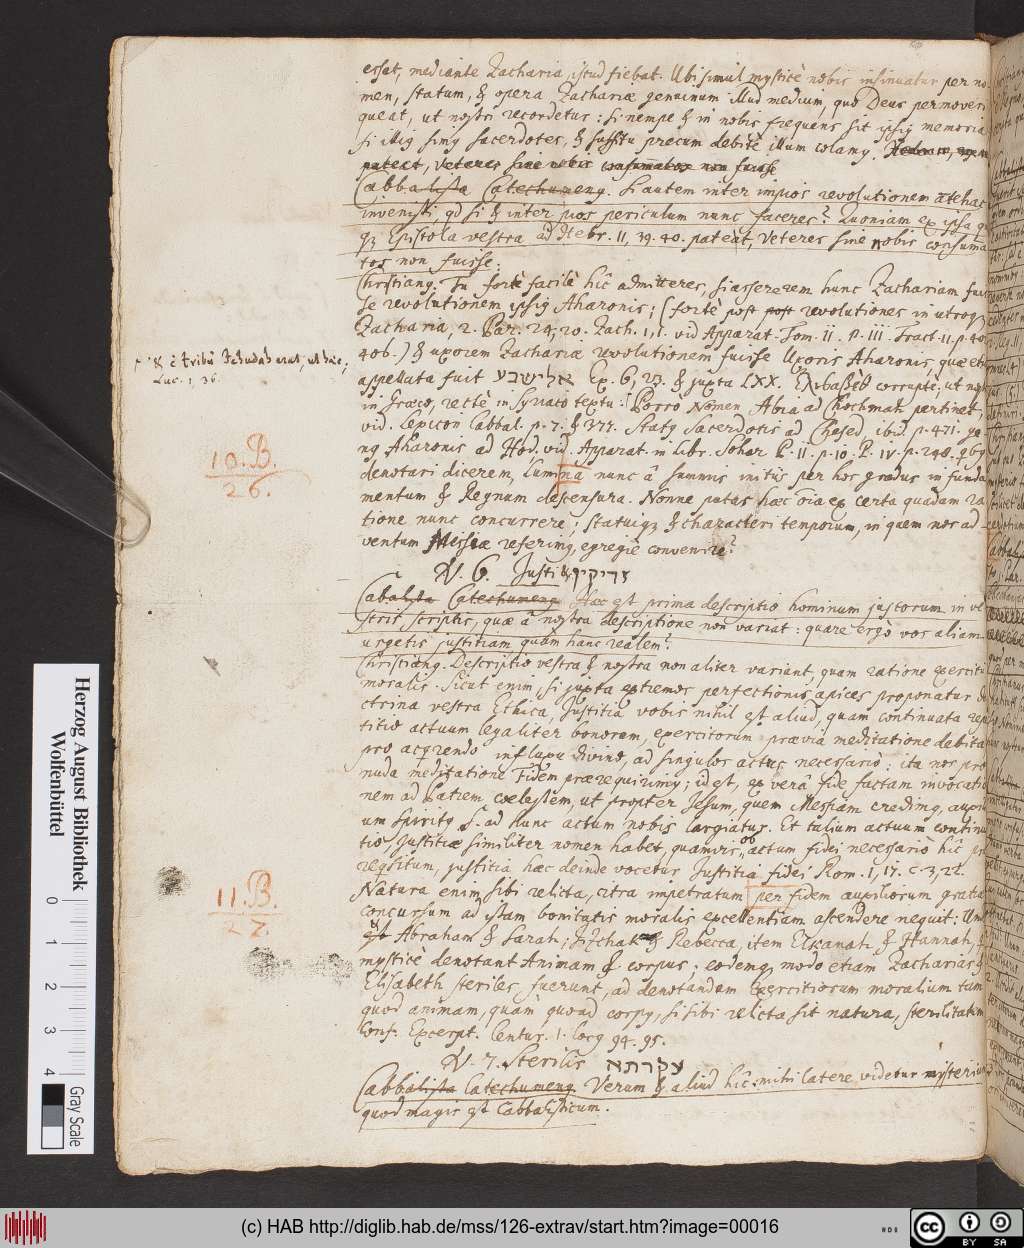 esset, mediante Zacharia, istud fiebat. Ubi simul mysticè nobis insinuatur per no
men, statum, & opera Zachariæ genuinum illud medium, quo Deus permoveri
queat, ut nostri recordetur: si nempe & in nobis frequens sit ipsiq memoria
si illiq simq sacerdotes, & suffitu precum debitè illum colamq.
pateat, Veteres sine nobis consummatos non fuisse
Cabbalista Catechumenq. Si autem inter impios revolutionem
invenisti, qd si & inter pios periculum nunc faceres? Quoniam ex ipsa
Epistola vestra ad Hebr. 11, 39. 40. pateat, Veteres sine nobis consuma
tos non fuisse.
Christianq. Tu fortè facilè hîc admitteres, si assererem hunc Zachariam fuis
se revolutionem ipsiq Aharonis; (fortè post revolutiones in utroq
Zacharia, 2. Par. 24, 20. Zach. 1, 1. vid. Apparat. Tom. II. p. III. Tract. II. p. 40
406.) & uxorem Zachariæ revolutionem fuisse Uxoris Aharonis, quæ etiam
è tribu Jehudah erat, ut hæc,
Luc. 1, 36.
appellata fuit אלישבע Ex. 6, 23. & juxta LXX. Ελισαβεθ corruptè, ut
in Græco, rectè in Syriaco textu: Porrò Nomen Abia ad Chochmah pertinet,
vid. Lexicon Cabbal. p. 7. & 377. Statq Sacerdotis ad Chesed, ibid. p. 471. ge
nq Aharonis ad Hod. vid. Apparat. in Libr. Sohar P. II. p. 10. P. IV. p. 248.
denotari dicerem, lumina nunc â summis initiis per hos gradus in funda
mentum & Regnum descensura. Nonne putas hæc oîa ex certa quadam ra
tione nunc concurrere; statuiq & characteri temporum, in quem nos ad-
ventum Messiæ referimq, egregiè convenire?
10. B.
26.
N. 6. Justi צדיקין
Cabalista Catechumenq. Hæc est prima descriptio hominum justorum in ve
stris scriptis, quæ â nostra descriptione non variat: quare ergò vos aliam
urgetis justitiam quàm hanc realem?
Christianq. Descriptio vestra & nostra non aliter variant, quam ratione exercitii
moralis. Sicut enim, si juxta extremos perfectionis apices proponatur do
ctrina vestra Ethica, Justitia vobis nihil est aliud, quam continuata repe
titio actuum legaliter bonorum, exercitorum prævia meditatione debita
pro acqrendo influxu divino, ad singulos actus necessario: ita nos pro
nuda meditatione Fidem prærequirimq; id est, ex verâ fide factam invocatio
nem ad Patrem coelestem, ut propter Jesum, quem Messiam credimq, auxili
um Spiritq S. ad hunc actum nobis largiatur. Et talium actuum continua
tio Justitiæ similiter nomen habet, quamvis ob actum fidei necessariò hîc
reqsitum, justitia hæc deinde vocetur Justitia fidei Rom. 1, 17. c. 3, 22.
Natura enim sibi relicta, citra impetratum per fidem auxiliorum gratiæ
concursum ad istam bonitatis moralis excellentiam ascendere nequit: Unde
& Abraham & Sarah, Jizchak & Rebecca, item Elkanah & Hannah,
mysticè denotant Animam & corpus; eodemq modo etiam Zacharias &
Elisabeth steriles fuerunt, ad denotandam Exercitiorum moralium tum
quod animam, quàm quoad corpq, si sibi relicta sit natura, sterilitatem
Conf. Excerpt. Centur. 1. locq 94. 95.
11. B.
27.
N. 7. Sterilis עקרתא
Cabbalista Catechumenq. Verum & aliud hîc mihi latere videtur mysterium
quod magis est Cabbalisticum.
Herzog August Bibliothek
Wolfenbüttel
0 1 2 3 4
Gray Scale
(c) HAB http://diglib.hab.de/mss/126-extrav/start.htm?image=00016
CC BY SA